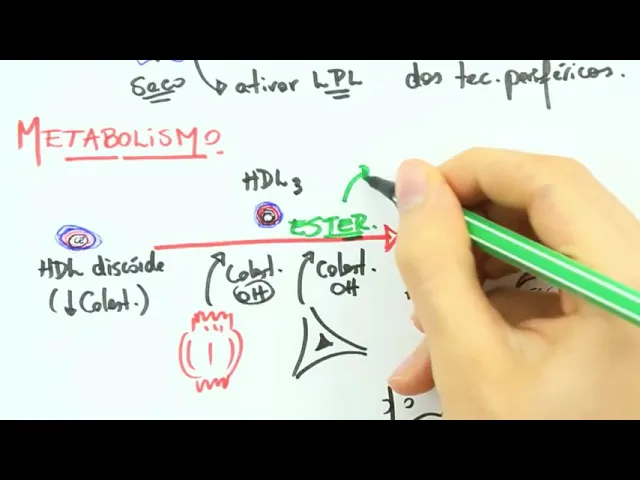 Saco ativar LPL dos tec. periféricos.
METABOLISMO
HDL3
CE
ESTER.
HDL discóide
(↓Colest.)
Colest. OH
Colest. OH